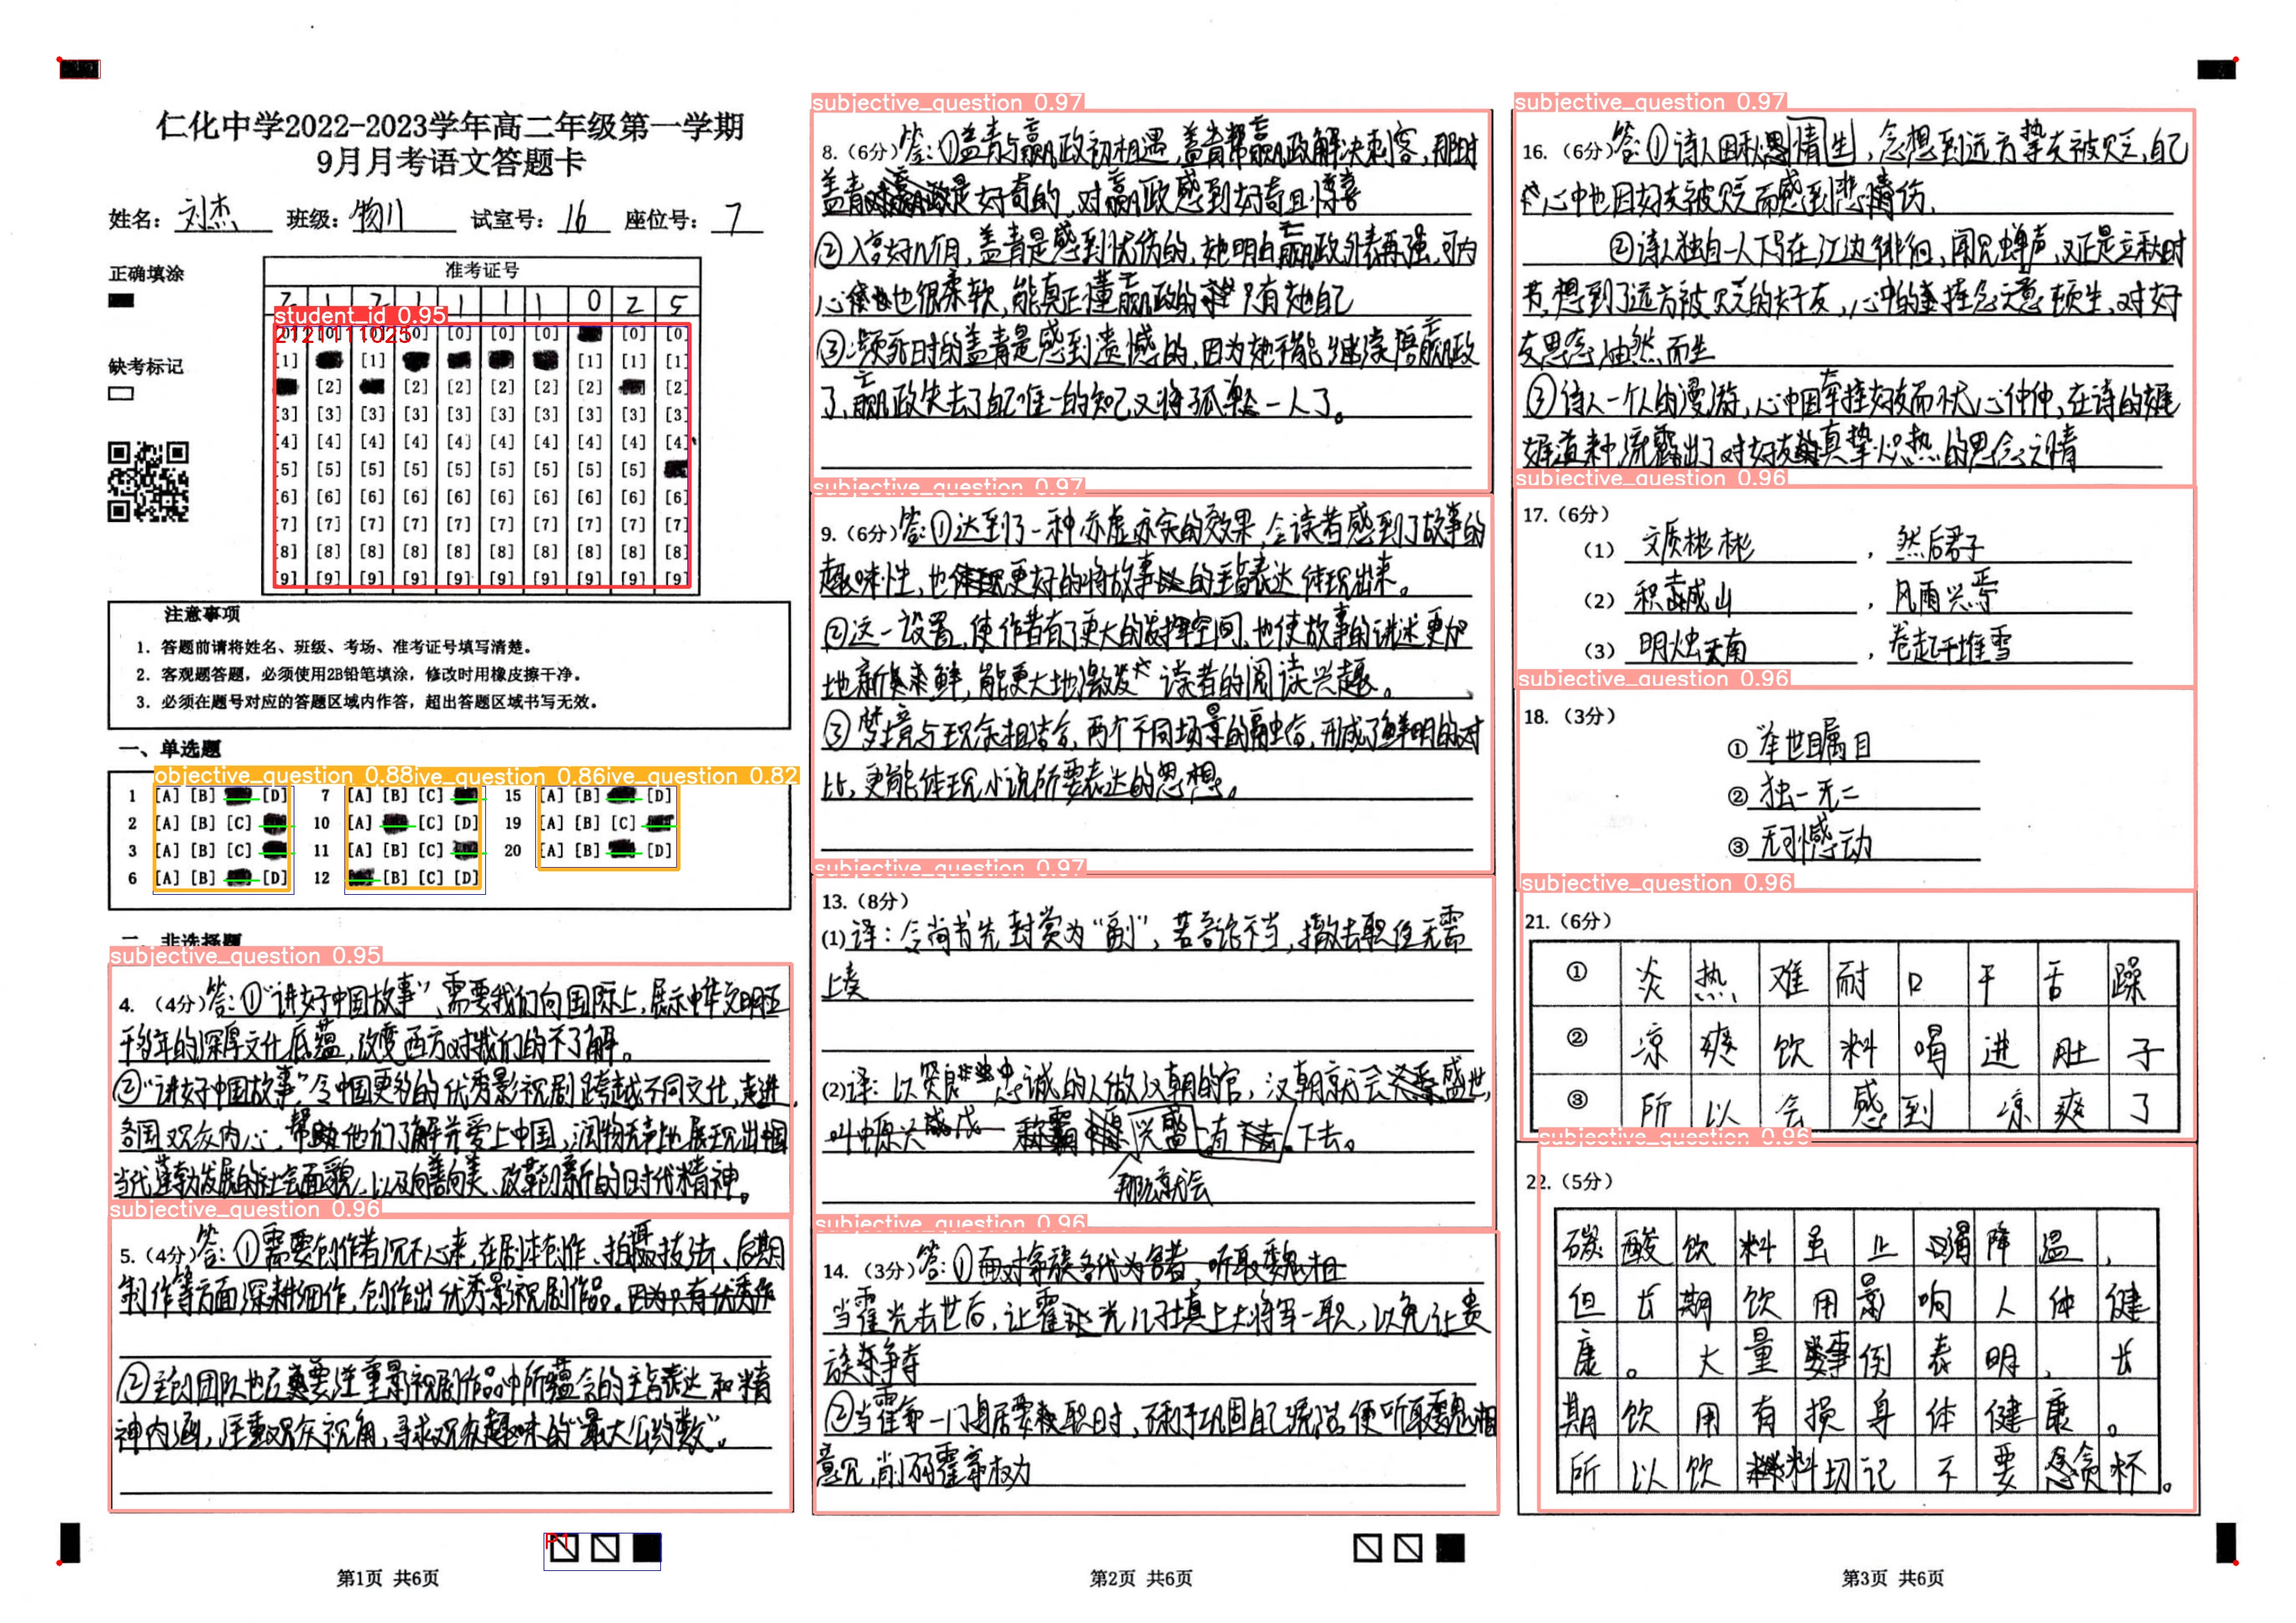 仁化中学2022-2023学年高二年级第一学期
9月月考语文答题卡
姓名: 刘杰 班级: 物川 试室号: 16 座位号: 7
正确填涂
缺考标记
准考证号
2 1 2 1 1 1 1 0 2 5
student_id 0.95
2121111025
[0] [0] [0] [0] [0] [0] [0] [0]
[1] [1] [1] [1] [1]
[2] [2] [2] [2] [2] [2] [2]
[3] [3] [3] [3] [3] [3] [3] [3] [3] [3]
[4] [4] [4] [4] [4] [4] [4] [4] [4] [4]
[5] [5] [5] [5] [5] [5] [5] [5] [5]
[6] [6] [6] [6] [6] [6] [6] [6] [6] [6]
[7] [7] [7] [7] [7] [7] [7] [7] [7] [7]
[8] [8] [8] [8] [8] [8] [8] [8] [8] [8]
[9] [9] [9] [9] [9] [9] [9] [9] [9] [9]
注意事项
1. 答题前请将姓名、班级、考场、准考证号填写清楚。
2. 客观题答题,必须使用2B铅笔填涂,修改时用橡皮擦干净。
3. 必须在题号对应的答题区域内作答,超出答题区域书写无效。
一、单选题
objective_question 0.88 ive_question 0.86 ive_question 0.82
1 [A] [B] [D] 7 [A] [B] [C] 15 [A] [B] [D]
2 [A] [B] [C] 10 [A] [C] [D] 19 [A] [B] [C]
3 [A] [B] [C] 11 [A] [B] [C] 20 [A] [B] [D]
6 [A] [B] [D] 12 [B] [C] [D]
二、非选择题
subjective_question 0.95
4. (4分) 答:①“讲好中国故事”,需要我们向国际上,展示中华文明五
千多年的深厚文化底蕴,改变西方对我们的不了解。
②“讲好中国故事”令中国更多的优秀影视剧跨越不同文化,走进
各国观众内心,帮助他们了解并爱上中国,润物无声地展现出中国
当代蓬勃发展的社会面貌,以及向善向美、改革创新的时代精神。
subjective_question 0.96
5. (4分) 答:①需要创作者沉下心来,在剧本创作、拍摄技法、后期
制作等方面深耕细作,创作出优秀影视剧作品。因为只有优秀作
②主创团队也应要注重影视剧作品中所蕴含的主旨表达和精
神内涵,注重观众视角,寻求观众趣味的“最大公约数”。
P1
第1页 共6页
subjective_question 0.97
8. (6分) 答:①盖青与嬴政初相遇,盖青帮嬴政解决刺客,那时
盖青对嬴政是好奇的,对嬴政感到好奇且惊喜
②入宫好几月,盖青是感到忧伤的,她明白嬴政外表再强,可内
心也很柔软,能真正懂嬴政的只有她自己
③濒死时的盖青是感到遗憾的,因为她不能继续陪嬴政
了,嬴政失去了自己唯一的知己又将孤单一人了。
subjective_question 0.97
9. (6分) 答:①达到了一种亦虚亦实的效果,令读者感到了故事的
趣味性,也更好的将故事的主旨表达体现出来。
②这一设置,使作者有了更大的发挥空间,也使故事的讲述更加
地新奇,能更大地激发读者的阅读兴趣。
③梦境与现实相结合,两个不同场景的融合,形成了鲜明的对
比,更能体现小说所要表达的思想。
subjective_question 0.97
13. (8分)
(1) 译:令尚书先封赏为“副”,若言论不当,撤去职位无需
上奏
(2) 译:以贤良忠诚的人做汉朝的官,汉朝就会盛世,
兴盛 直 下去。
那么就会
subjective_question 0.96
14. (3分) 答:①面对家族各代为害者,听取魏相
当霍光去世后,让霍光儿子填上大将军一职,以免让贵
族来争夺
②当霍家一门身居要职时,不利于巩固自己统治,便听取魏相
意见,削弱霍家权力
第2页 共6页
subjective_question 0.97
16. (6分) 答:①诗人因秋思情生,念想到远方挚友被贬,自己
心中也因好友被贬而感到悲伤。
②诗人独自一人下马在江边徘徊,闻见蝉声,又正是立秋时
节,想到了远方被贬的好友,心中的挂念之意顿生,对好
友思念油然而生
③诗人一个人的漫游,心中因牵挂好友而忧心忡忡,在诗的尾
道来中,流露出了对好友真挚炽热的思念之情
subjective_question 0.96
17. (6分)
(1) 文质彬彬 , 然后君子
(2) 积土成山 , 风雨兴焉
(3) 明烛天南 , 卷起千堆雪
subjective_question 0.96
18. (3分)
① 举世瞩目
② 独一无二
③ 无动
subjective_question 0.96
21. (6分)
① 炎热难耐口干舌躁
② 凉爽饮料喝进肚子
③ 所以会感到凉爽了
subjective_question 0.96
22. (5分)
碳酸饮料虽止渴降温,
但长期饮用影响人体健
康。大量事例表明,长
期饮用有损身体健康。
所以饮料切记不要贪杯。
第3页 共6页